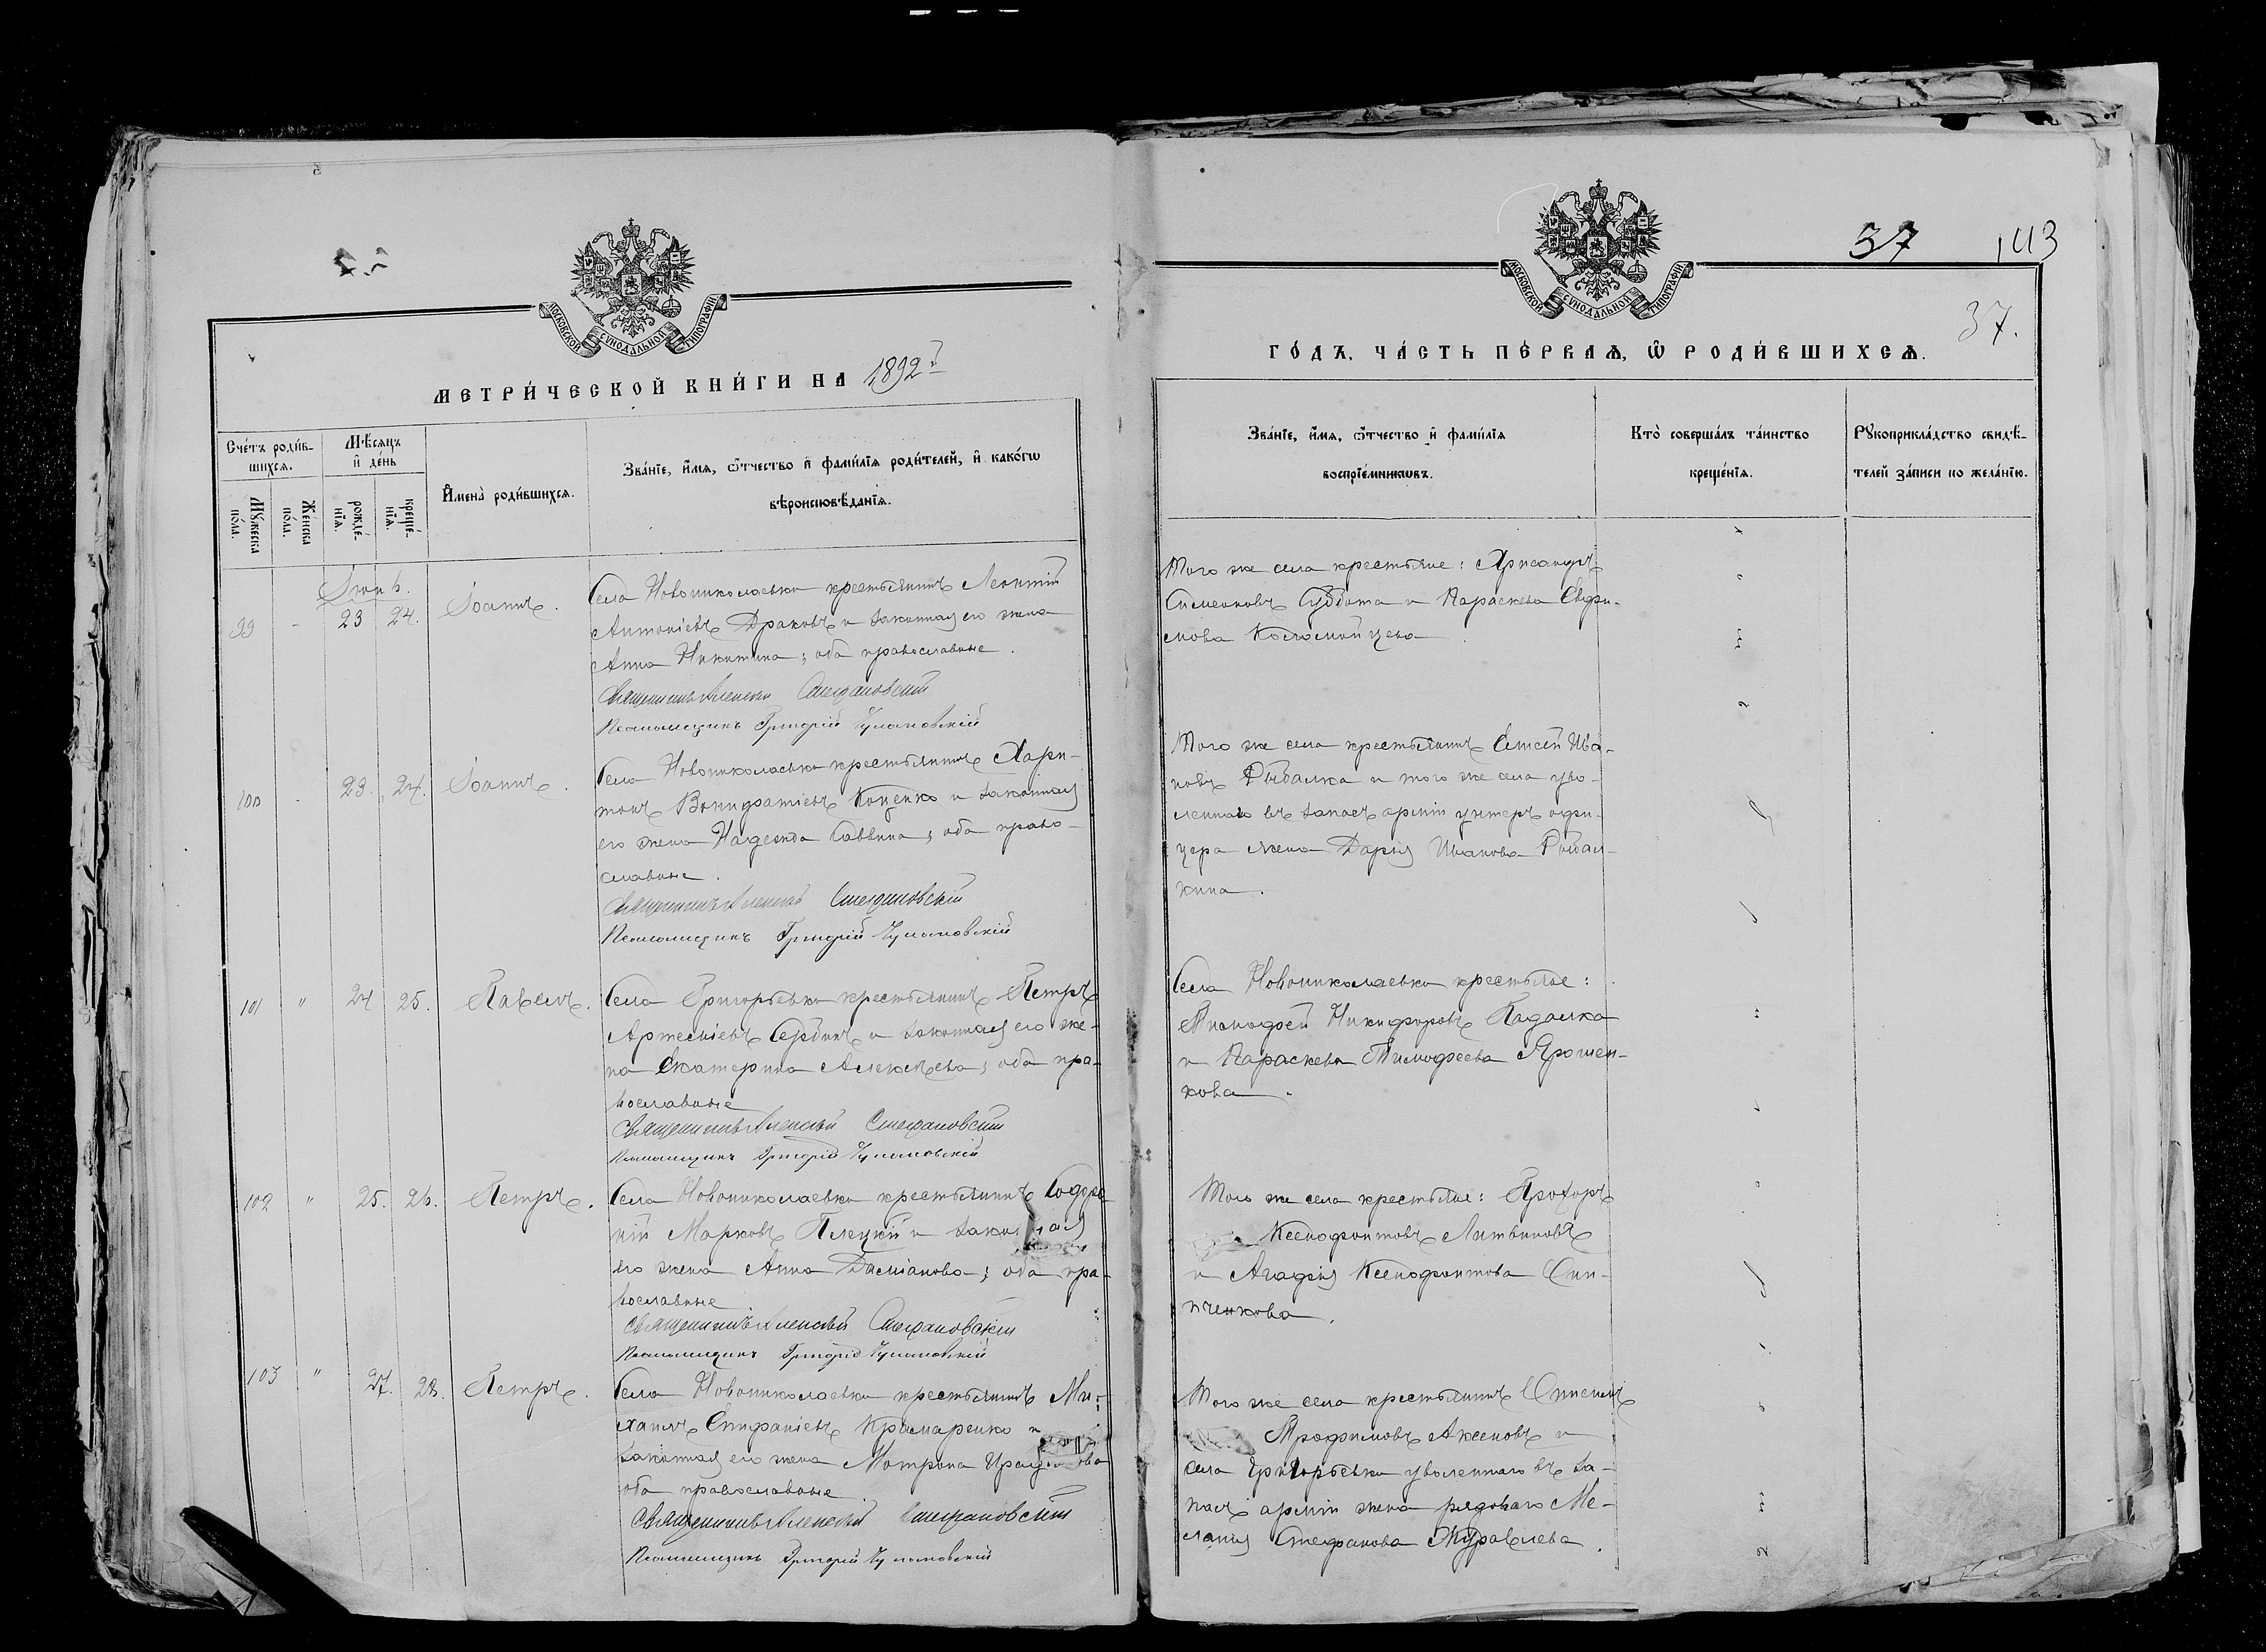 МОСКОВСКОЙ СѴНОДАЛЬНОЙ ТИПОГРАФІИ
МЕТРИ́ЧЕСКОЙ КНИ́ГИ НА 1892й
Сче́тъ роди́в-
шихсѧ.
Мꙋ́жеска по́ла.
Же́нска по́ла.
Мѣ́сѧцъ и҆ де́нь
рожде́-
нїѧ.
креще́-
нїѧ.
И҆мена̀ роди́вшихсѧ.
Зва́нїе, и҆́мѧ, ѻ҆́тчество и҆ фами́лїѧ роди́телей, и҆ како́гѡ
вѣроисповѣ́данїѧ.
Іюнь.
99 - 23 24. Іоаннъ.
Села Новониколаевки крестьянинъ Леонтій
Антоніевъ Драковъ и законная его жена
Анна Никитина; оба православные.
Священникъ Алексій Стефановскій
Псаломщикъ Григорій Чулановскій
100 - 23. 24. Іоаннъ.
Села Новониколаевки крестьянинъ Хари-
тонъ Вонифатіевъ Коценко и законная
его жена Надежда Саввина; оба право-
славные.
Священникъ Алексій Стефановскій
Псаломщикъ Григорій Чулановскій
101 " 24 25. Павелъ.
Села Григорьевки крестьянинъ Петръ
Артеміевъ Сердикъ и законная его же-
на Екатерина Алексѣева; оба пра-
вославные
Священникъ Алексій Стефановскій
Псаломщикъ Григорій Чулановскій
102 " 25. 26. Петръ.
Села Новониколаевки крестьянинъ
Марковъ Плецкій и законная
его жена Анна Даміанова; оба пра-
вославные
Священникъ Алексій Стефановскій
Псаломщикъ Григорій Чулановскій
103 " 27. 28. Петръ.
Села Новониколаевки крестьянинъ Ми-
хаилъ Епифаніевъ Крамаренко и
законная его жена Матрона
оба православные.
Священникъ Алексій Стефановскій
Псаломщикъ Григорій Чулановскій
37 143
37.
МОСКОВСКОЙ СѴНОДАЛЬНОЙ ТИПОГРАФІИ
ГО́ДЪ, ЧА́СТЬ ПЕ́РВАѦ, Ѽ РОДИ́ВШИХСѦ.
Зва́нїе, и҆́мѧ, ѻ҆́тчество и҆ фами́лїѧ
воспрїе́мникѡвъ.
Кто̀ соверша́лъ та́инство
креще́нїѧ.
Рꙋкоприкла́дство свидѣ́-
телей за́писи по жела́нїю.
Того же села крестьяне: Александръ
Симеоновъ Суббота и Параскева Евфи-
мова Коломойцева
Того же села крестьянинъ Ива-
новъ Рыбалка и того же села уво-
леннаго въ запасъ арміи унтеръ офи-
цера жена Дарья Иванова Рыбал-
кина.
Села Новониколаевки крестьяне:
Тимофей Никифоровъ Падалка
и Параскева Тимофеева Ярошен-
кова.
Того же села крестьяне: Прохоръ
Ксенофонтовъ Литвиновъ
и Агафія Ксенофонтова Они-
пченкова.
Того же села крестьянинъ Онисимъ
Трофимовъ Аксеновъ и
села Григорьевки уволеннаго въ за-
пасъ арміи жена рядоваго Ме-
ланія Стефанова Журавлева.